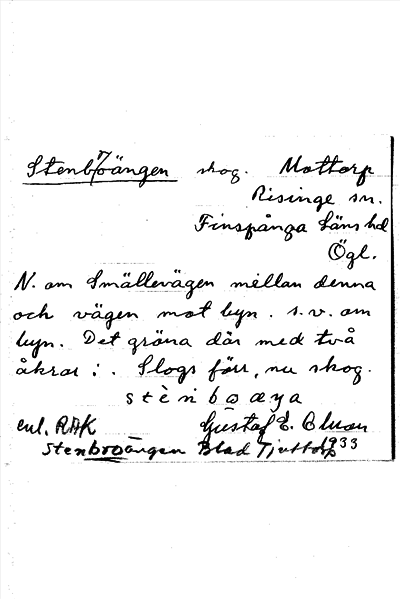 Stenbroängen skog. Mottorp
Risinge sn.
Finspånga läns hd
Ögl.
N. om Smällevägen mellan denna
och vägen mot byn. s.v. om
byn. Det gröna där med två
åkrar i. Slogs förr, nu skog.
enl. RAK Gustaf E. Olson
1933
Stenbroängen Blad Tjuttorp